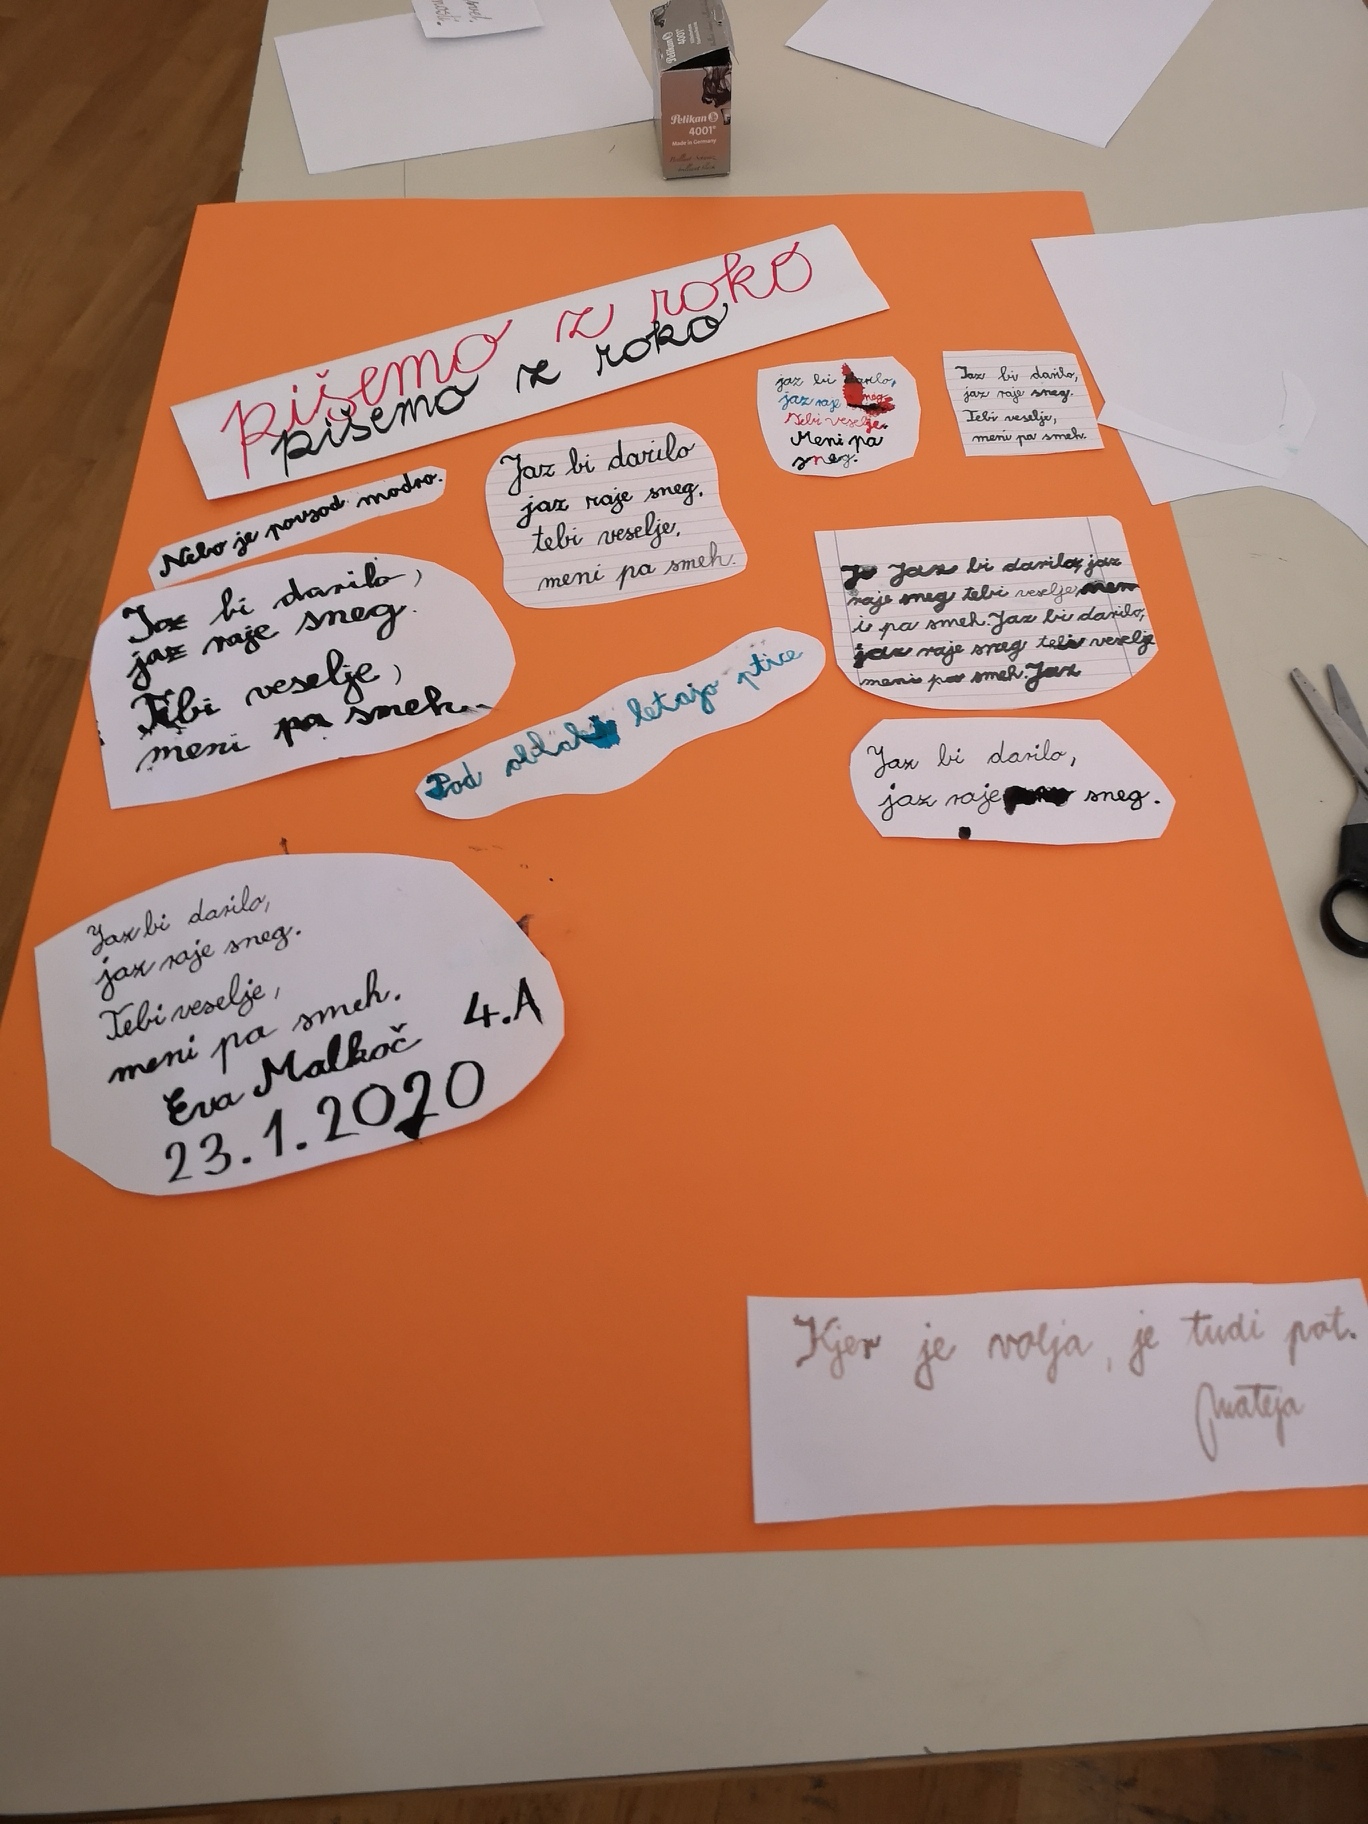 Pelikan
4001
Pelikan
4001®
Made in Germany
pišemo z roko
pišemo z roko
jaz bi darilo,
jaz raje sneg.
Tebi veselje.
Meni pa
sneg.
Jaz bi darilo,
jaz raje sneg.
Tebi veselje,
meni pa smeh.
Nebo je povsod modro.
Jaz bi darilo
jaz raje sneg.
tebi veselje.
meni pa smeh.
Jaz bi darilo,
jaz raje sneg.
Tebi veselje,
meni pa smeh.
Jaz bi darilo, jaz
raje sneg tebi veselje men
i pa smeh. Jaz bi darilo,
jaz raje sneg tebi veselje
meni pa smeh. Jaz
Pod oblaki letajo ptice
Jaz bi darilo,
jaz raje sneg.
Jaz bi darilo,
jaz raje sneg.
Tebi veselje,
meni pa smeh.
Eva Malkoč 4.A
23.1.2020
Kjer je volja, je tudi pot.
Mateja